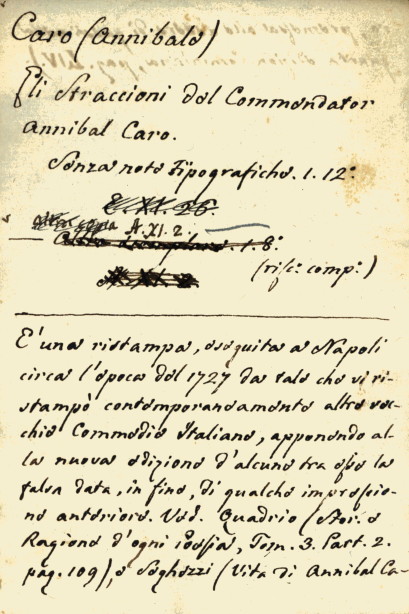 Caro (Annibale)
Gli Straccioni del Commendator
Annibal Caro.
Senza note Tipografiche. 1. 12.°
E. XI. 26.
altra copia A. XI. 2.
Altro esemplare. 1. 8.°
(rifc.° comp.°)
E' una ristampa, eseguita a Napoli
circa l'epoca del 1727 da tale che vi ri-
stampò contemporaneamente altre vec-
chie Commedie Italiane, apponendo al-
la nuova edizione d'alcune tra esse la
falsa data, in fine, di qualche impressio-
ne anteriore. Ved. Quadrio (Stor. e
Ragione d'ogni Poesia, Tom. 3. Part. 2.
pag. 109), e Seghezzi (Vita di Annibal Ca-